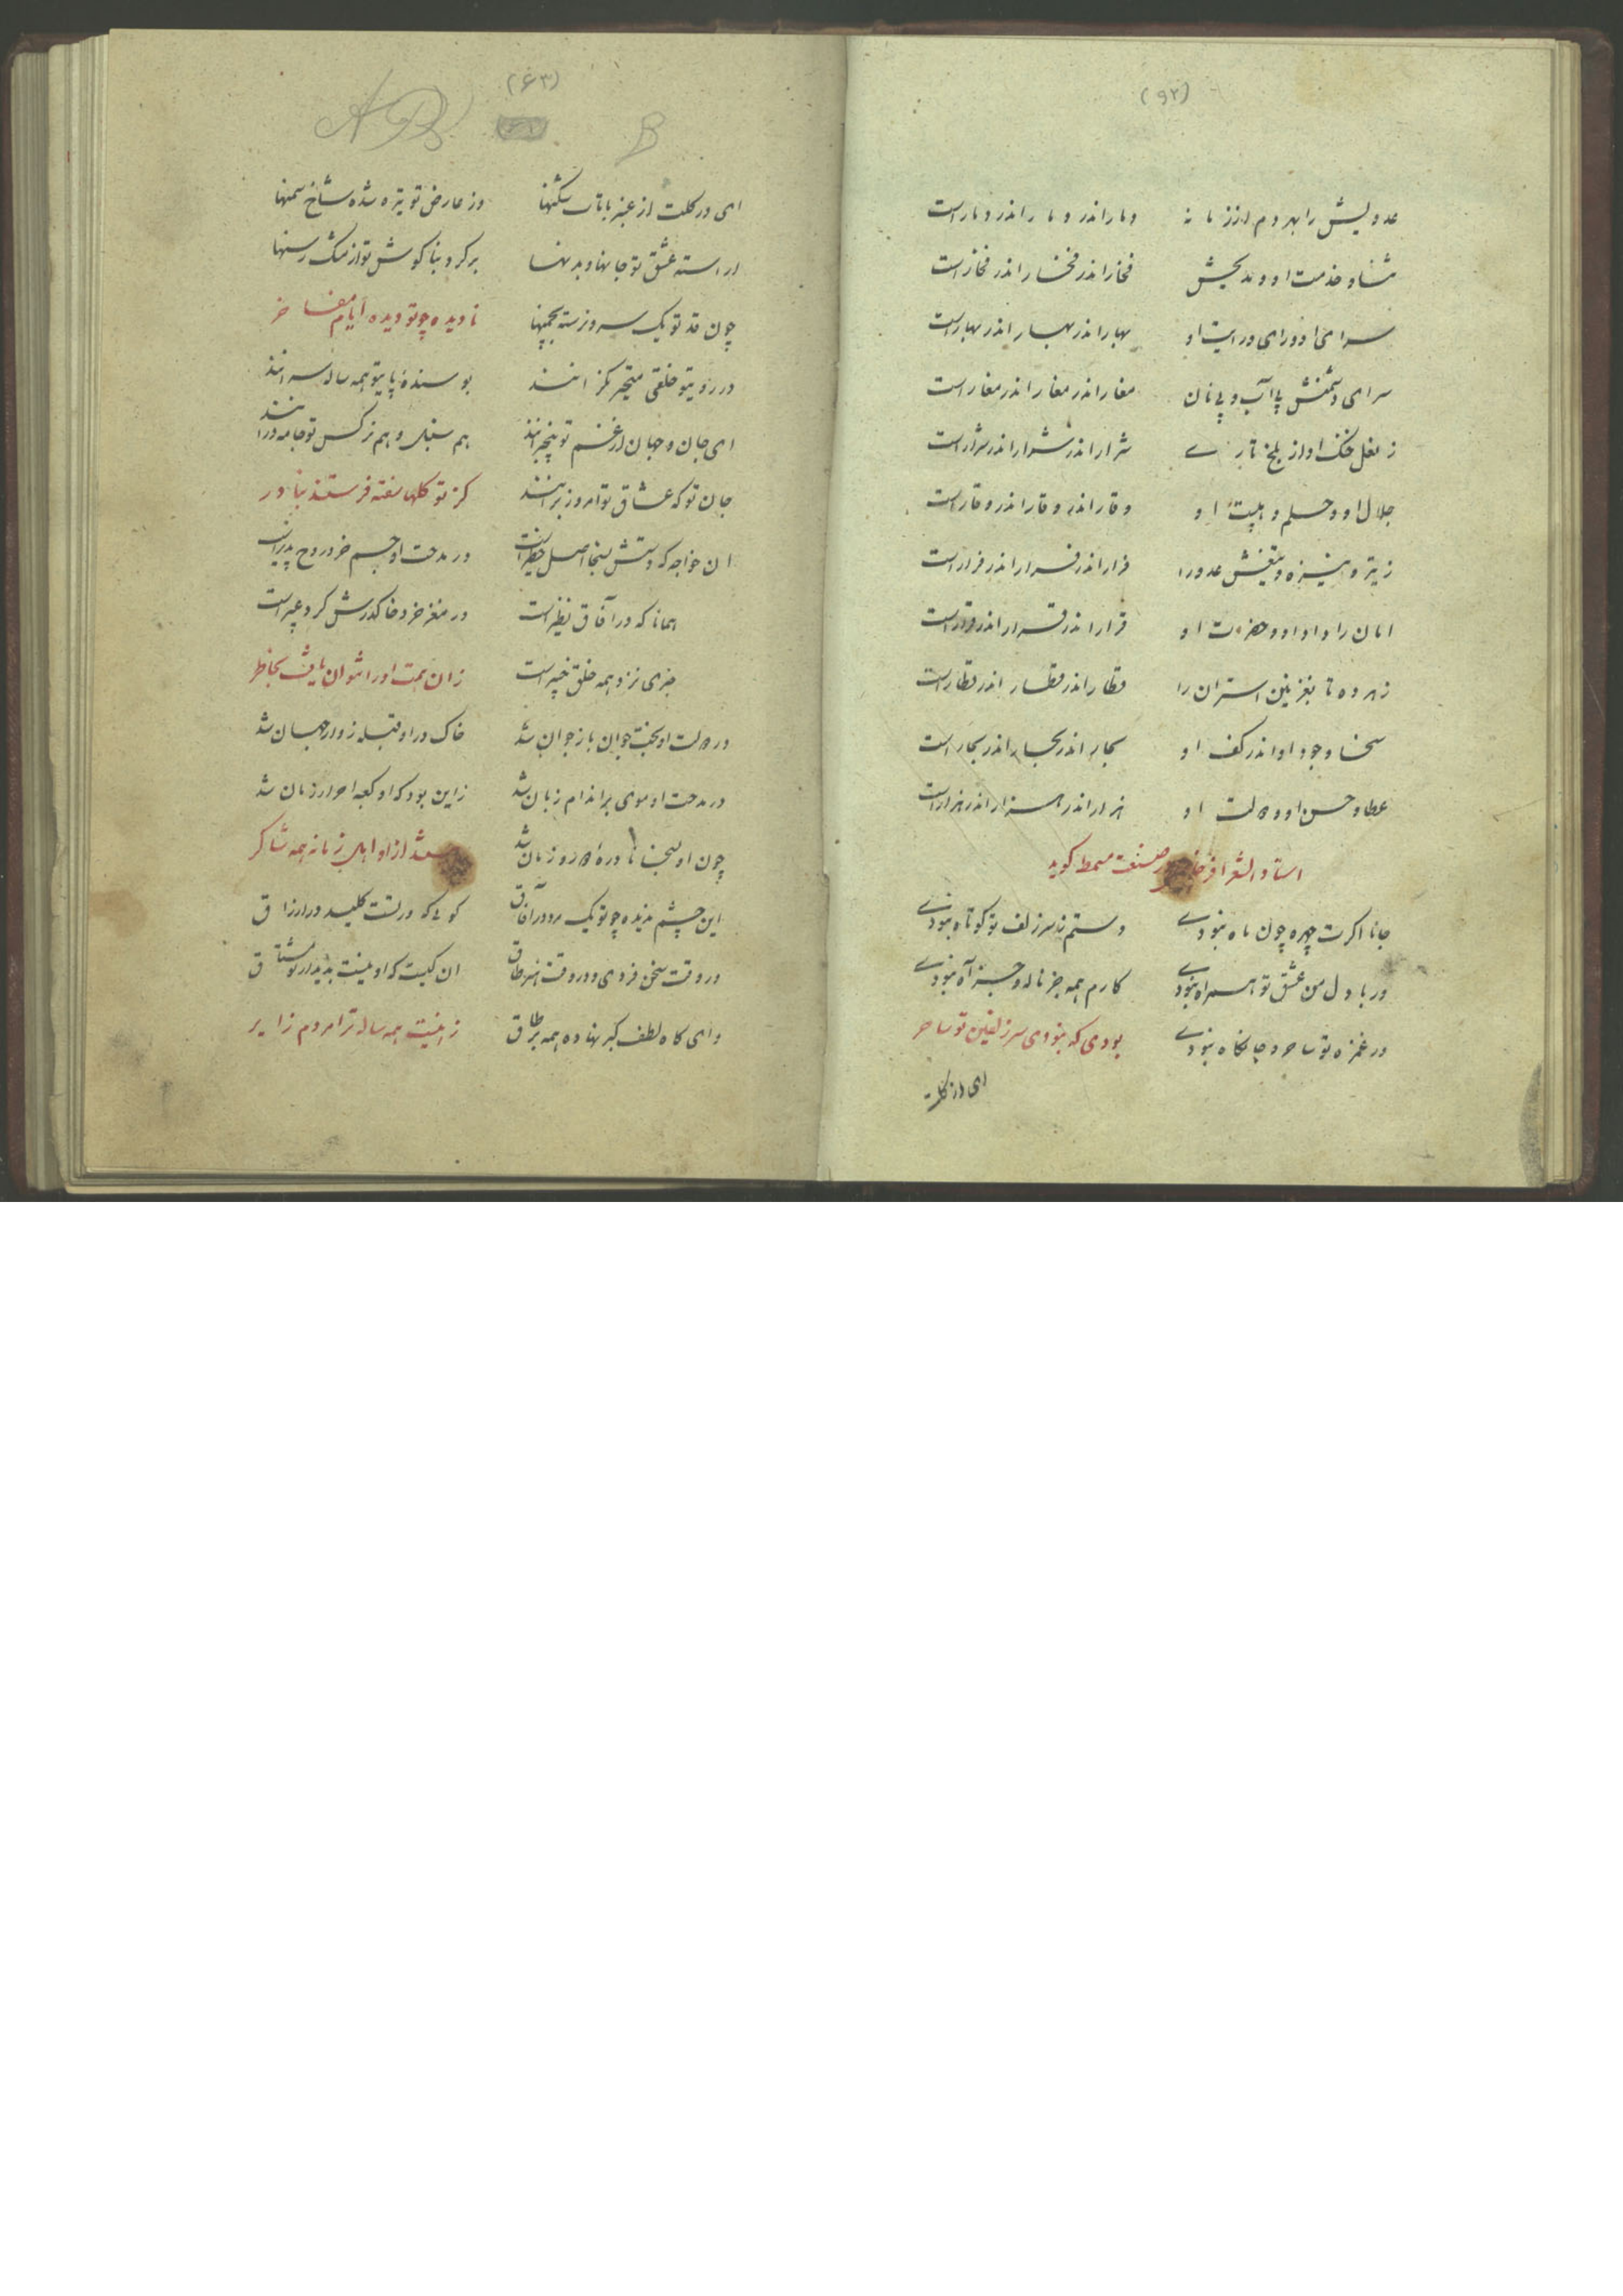 (۹۲)
عدویش را بهر دم از زمانه دمار اندر دمار اندر دمار است
ثنا و خدمت او و مدیحش فخار اندر فخار اندر فخار است
سرای او ورای درایت او بهار اندر بهار اندر بهار است
سرای دشمنش بی آب و بی نان مغار اندر مغار اندر مغار است
ز نعل خنک او از بلخ تا ری شرار اندر شرار اندر شرار است
جلال او و حلم و هیبت او وقار اندر وقار اندر وقار است
ز تیر و نیزه و تیغش عدو را فرار اندر فرار اندر فرار است
امان را داد او و حضرت او قرار اندر قرار اندر قرار است
زهر ده تا بغزنین استران را قطار اندر قطار اندر قطار است
سخا وجود او اندر کف او بحار اندر بحار اندر بحار است
عطا و حسن او و دولت او هزار اندر هزار اندر هزار است
استاد الشعرا فرخی در صنعت مسمط کوید
جانا اکرت چهره چون ماه نبودی دستم ز سر زلف تو کوتاه نبودی
ور با دل من عشق تو همراه نبودی کارم همه جز ناله و جز آه نبودی
در غمزه تو ساحر و جانکاه نبودی بودی که نبودی سر زلفین تو ساحر
ای از کلت
(۶۳)
ای در کلت از عنبر با تاب شکنها وز عارض تو تیره شده شاخ سمنها
اراسته عشق تو جانها و بدنها بر کرد بنا کوش تو از مشک رسنها
چون قد تو یک سرو نرسته بچمنها نادیده چو تو دیده ایام مفاخر
در رویتو خلقی متحیر نکرانند بوسنده پایتو همه ساله سرانند
ای جان و جهان از غم تو بیخبرانند هم سنبل و هم نرکس تو جامه درانند
جان تو که عشاق تو امروز برانند کز تو کلها سفته فرستند بنادر
ان خواجه که دستش بسخا اصل خطیر است در مدحت او جسم خرد روح پذیر است
همانا که در آفاق نظیر است در مغز خرد خاک درش کرد عبیر است
خبری نزد همه خلق خبیر است زان همت او را نتوان یافت بخاطر
در دولت او بخت جوان باز جوان شد خاک در او قبله زوار جهان شد
در مدحت او موی بر اندام زبان شد زاین بود که او کعبه احرار زمان شد
چون او بسخا نادره دور زمان شد شد از او اهل زمانه همه شاکر
این چشم ندیده چو تو یک مرد در آفاق کوئی که در تست کلید در ارزاق
در وقت سخن فردی و در وقت هنر طاق ان کیست که او نیست بدیدار تو مشتاق
وای کاه لطف کبر نهاده همه بر طاق زاینست همه ساله ترا مردم زایر